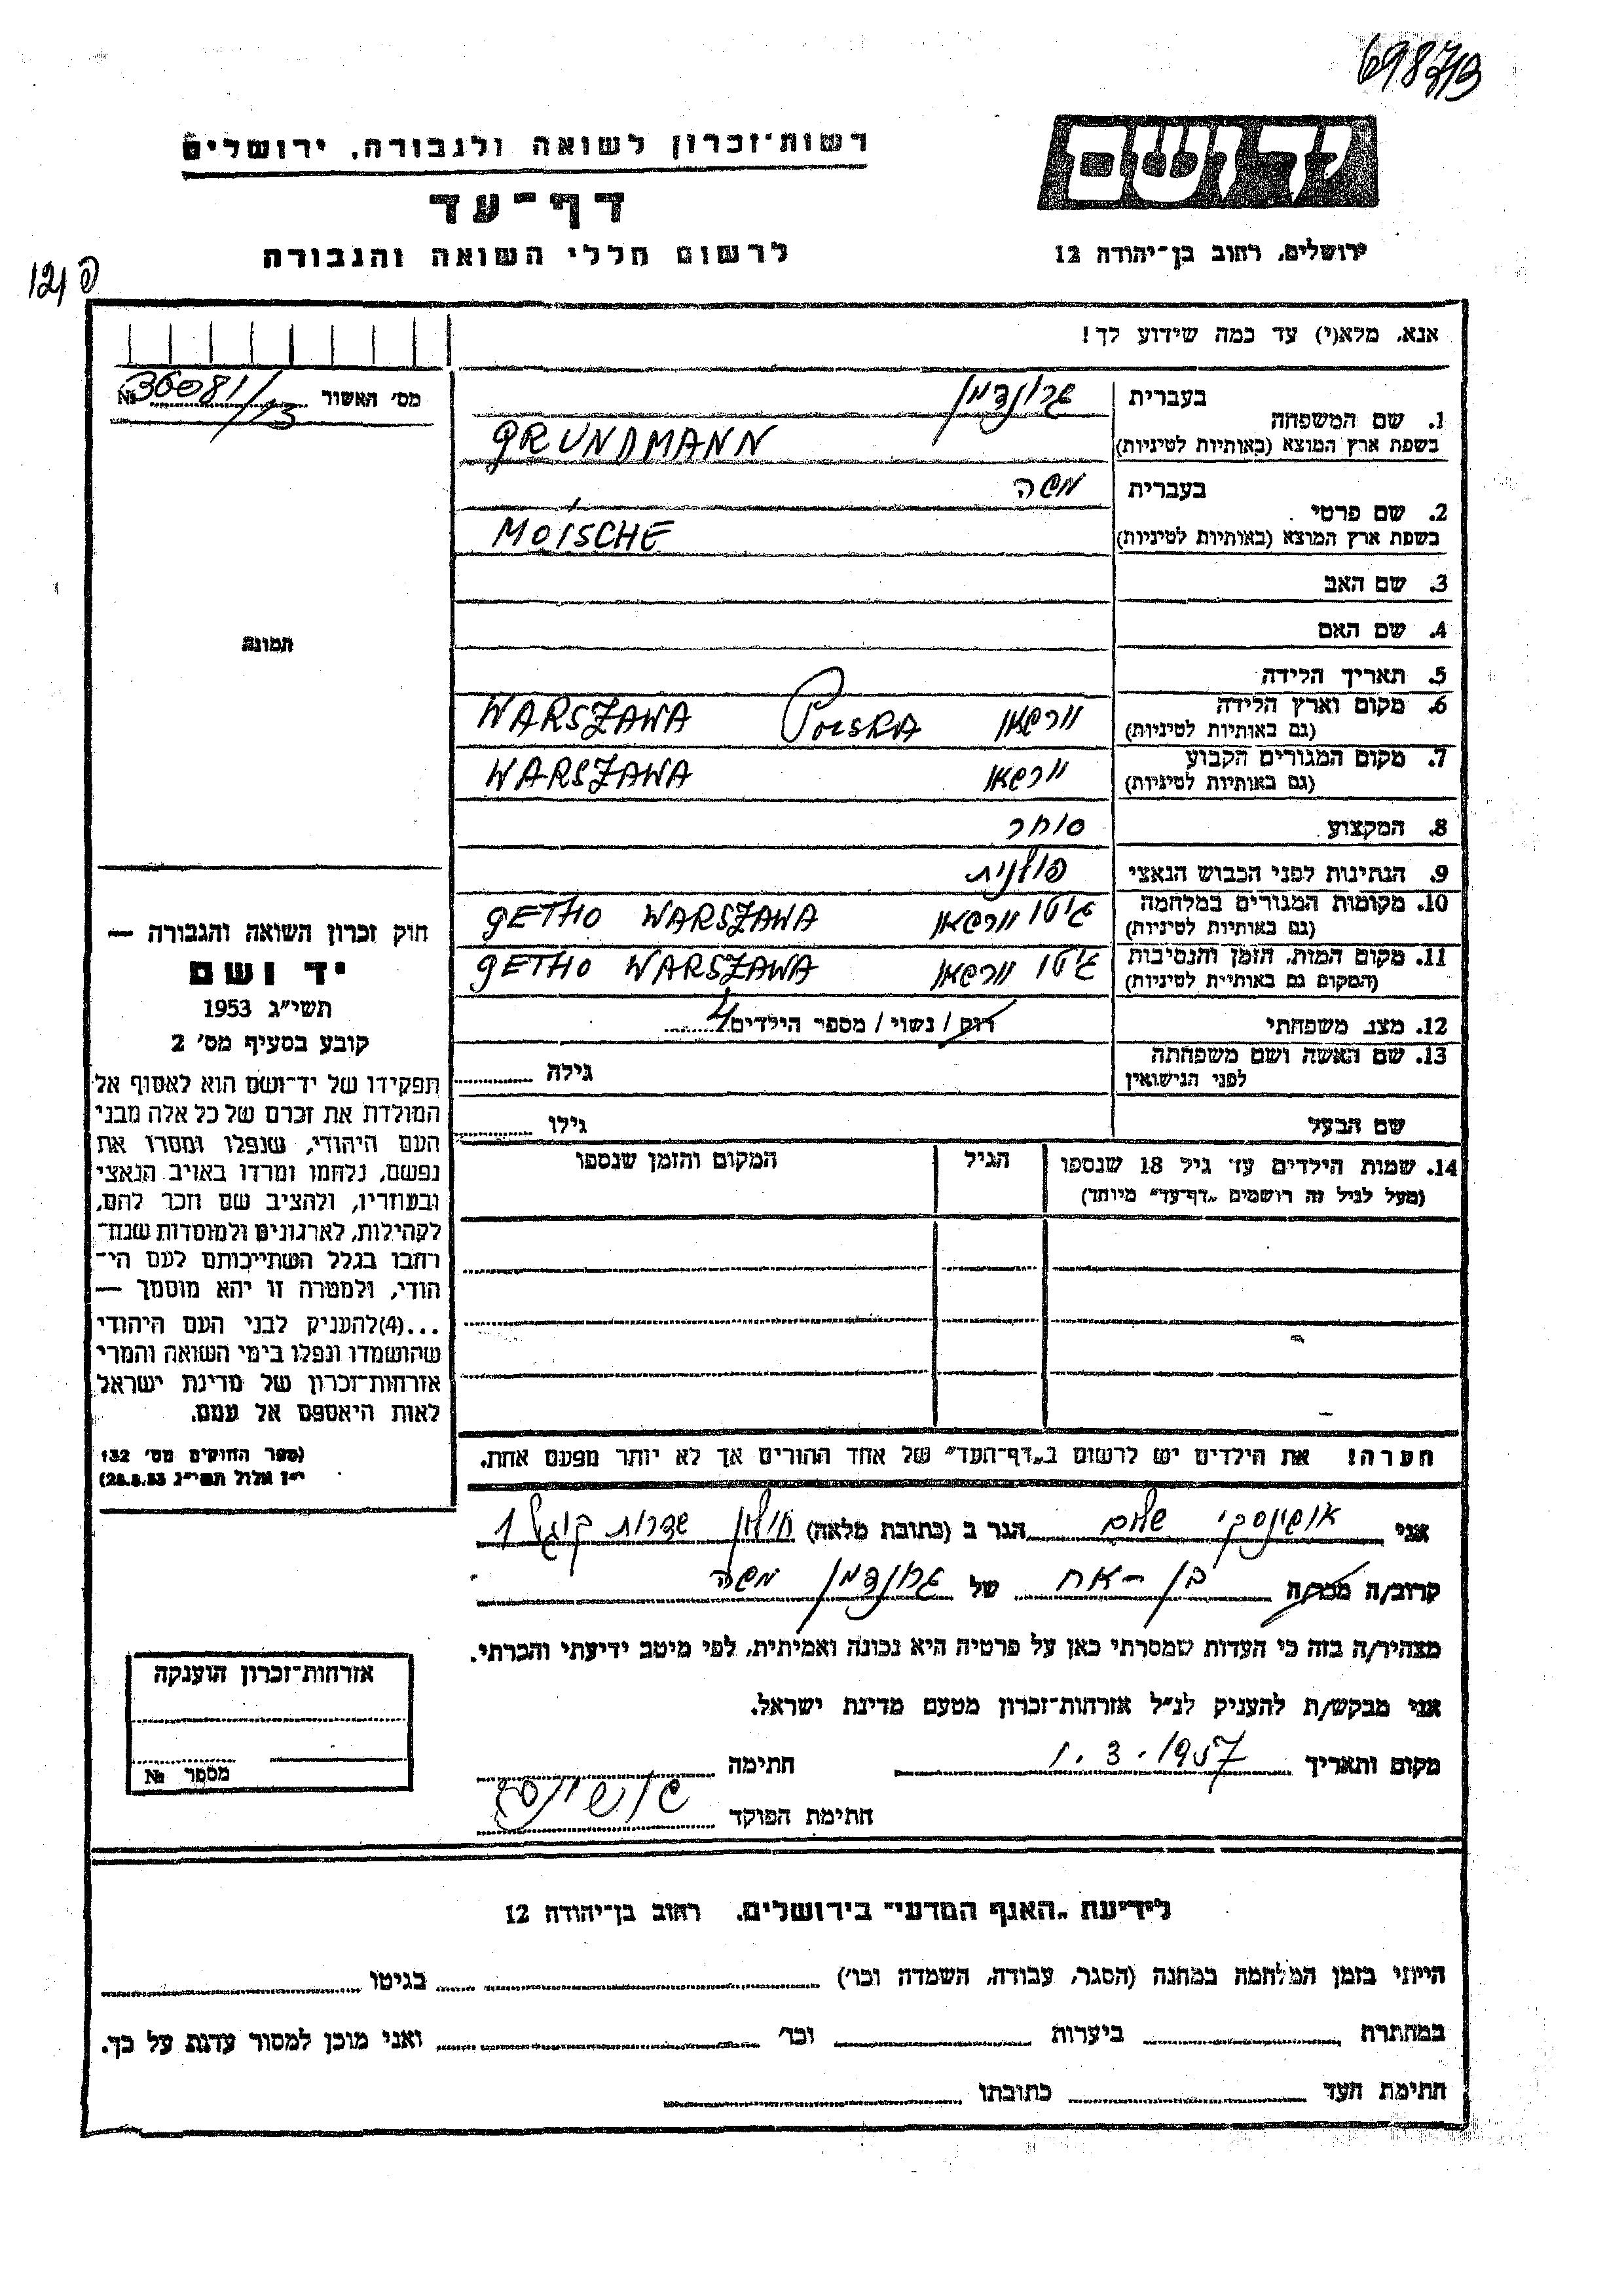 69873
רשות־זכרון לשואה ולגבורה, ירושלים
יד ושם
דף־עד
לרשום חללי השואה והגבורה
ירושלים, רחוב בן־יהודה 12
121 פ
אנא, מלא(י) עד כמה שידוע לך!
מס׳ האשור № 36081/13
1. שם המשפחה
בעברית גרונדמן
בשפת ארץ המוצא (באותיות לטיניות) GRUNDMANN
2. שם פרטי
בעברית משה
בשפת ארץ המוצא (באותיות לטיניות) MOISCHE
3. שם האב
4. שם האם
תמונה
5. תאריך הלידה
6. מקום וארץ הלידה (גם באותיות לטיניות) וורשאו POLSKA WARSZAWA
7. מקום המגורים הקבוע (גם באותיות לטיניות) וורשאו WARSZAWA
8. המקצוע סוחר
9. הנתינות לפני הכבוש הנאצי פולנית
10. מקומות המגורים במלחמה (גם באותיות לטיניות) גיטו וורשאו GETHO WARSZAWA
11. מקום המות, הזמן והנסיבות (המקום גם באותיות לטיניות) גיטו וורשאו GETHO WARSZAWA
12. מצב משפחתי רוק / נשוי / מספר הילדים 4
13. שם האשה ושם משפחתה לפני הנישואין גילה
שם הבעל גילו
14. שמות הילדים עד גיל 18 שנספו הגיל המקום והזמן שנספו
(מעל לגיל זה רושמים „דף־עד״ מיוחד)
הערה! את הילדים יש לרשום ב„דף־העד״ של אחד ההורים אך לא יותר מפעם אחת.
חוק זכרון השואה והגבורה —
יד ושם
תשי״ג 1953
קובע בסעיף מס׳ 2
תפקידו של יד־ושם הוא לאסוף אל
המולדת את זכרם של כל אלה מבני
העם היהודי, שנפלו ומסרו את
נפשם, נלחמו ומרדו באויב הנאצי
ובעוזריו, ולהציב שם וזכר להם,
לקהילות, לארגונים ולמוסדות שנח־
רבו בגלל השתייכותם לעם הי־
הודי, ולמטרה זו יהא מוסמך —
...(4) להעניק לבני העם היהודי
שהושמדו ונפלו בימי השואה והמרי
אזרחות־זכרון של מדינת ישראל
לאות היאספם אל עמם.
(ספר החוקים מס׳ 132
י״ז אלול תשי״ג 28.8.53)
אני אושינסקי שלום הגר ב (כתובת מלאה) חולון שדרות קוגל 1
קרוב/ה מכר/ה בן-אח של גרונדמן משה
מצהיר/ה בזה כי העדות שמסרתי כאן על פרטיה היא נכונה ואמיתית, לפי מיטב ידיעתי והכרתי.
אני מבקש/ת להעניק לנ״ל אזרחות־זכרון מטעם מדינת ישראל.
מקום ותאריך 1.3.1957 חתימה
חתימת הפוקד
אזרחות־זכרון הוענקה
מספר №
לידיעת „האגף המדעי״ בירושלים, רחוב בן־יהודה 12
הייתי בזמן המלחמה במחנה (הסגר, עבודה, השמדה וכו׳) בגיטו
במחתרת ביערות וכו׳ ואני מוכן למסור עדות על כך.
חתימת העד כתובתו